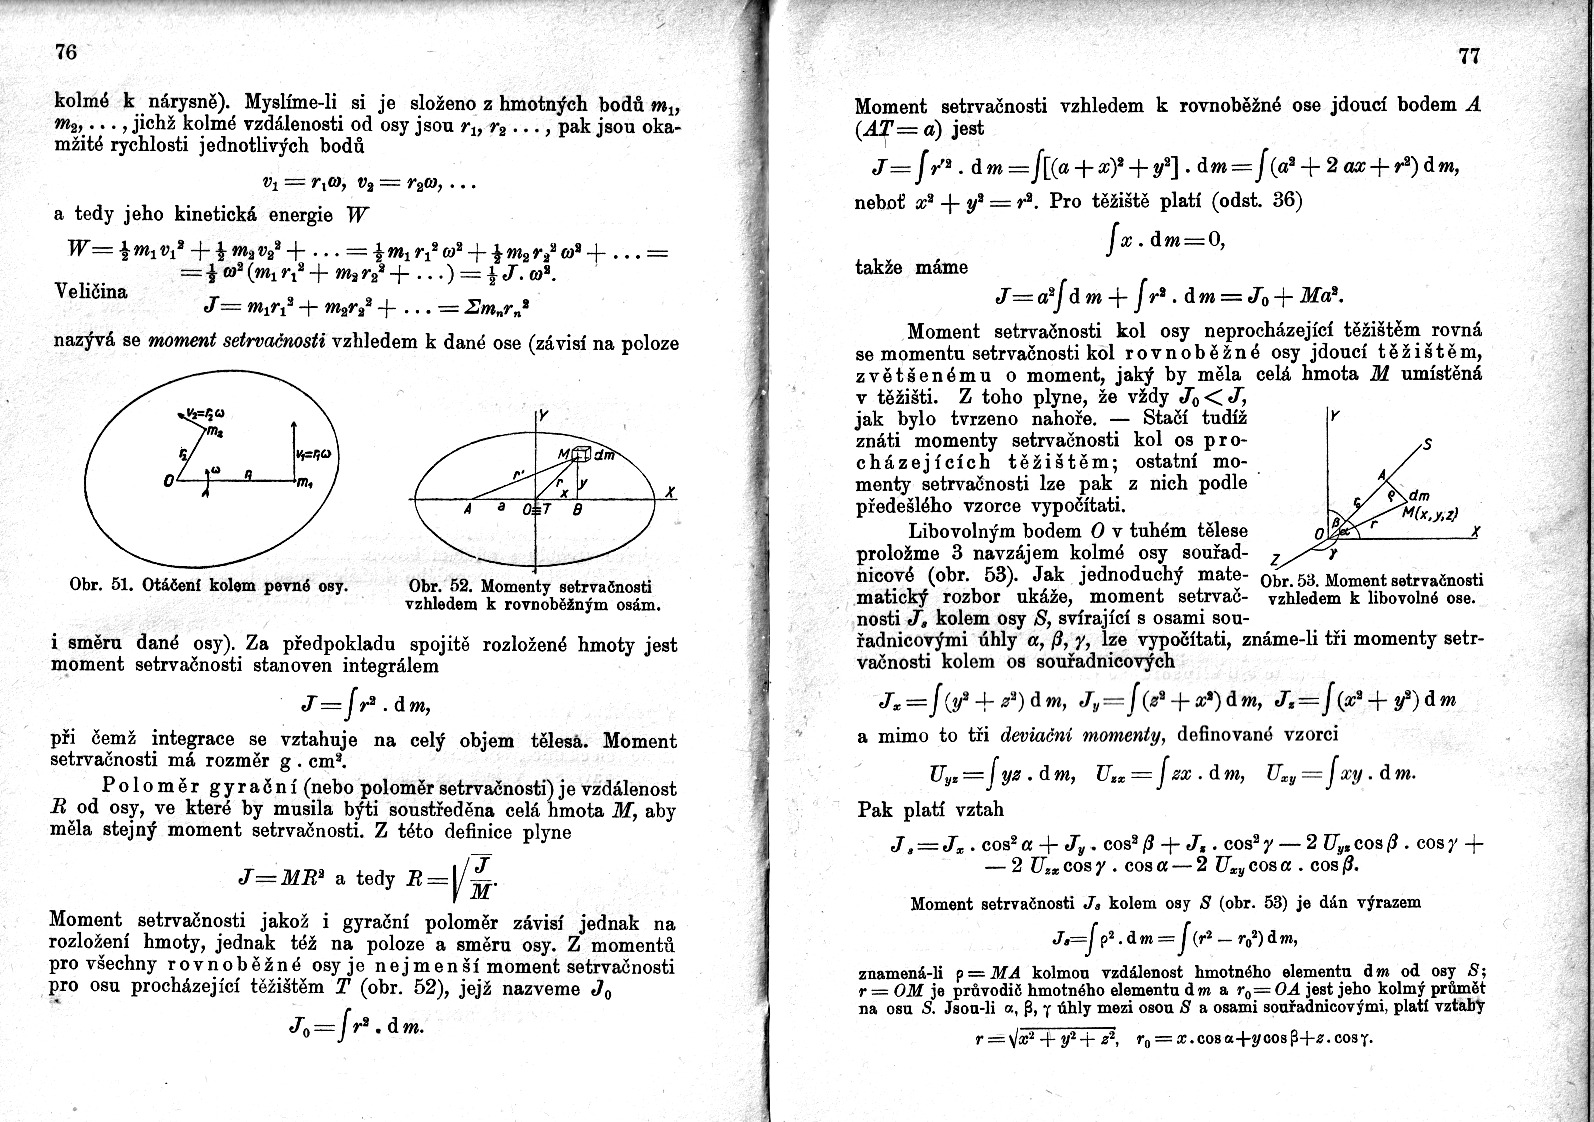 76
kolmé k nárysně). Myslíme-li si je složeno z hmotných bodů m₁,
m₂, . . . , jichž kolmé vzdálenosti od osy jsou r₁, r₂ . . . , pak jsou oka-
mžité rychlosti jednotlivých bodů
v₁ = r₁ω, v₂ = r₂ω, . . .
a tedy jeho kinetická energie W
W = ½ m₁ v₁² + ½ m₂ v₂² + . . . = ½ m₁ r₁² ω² + ½ m₂ r₂² ω² + . . . =
= ½ ω² (m₁ r₁² + m₂ r₂² + . . .) = ½ J . ω².
Veličina
J = m₁r₁² + m₂r₂² + . . . = Σmₙrₙ²
nazývá se moment setrvačnosti vzhledem k dané ose (závisí na poloze
v₂=r₂ω
m₂
r₂
v₁=r₁ω
O
ω
r₁
m₁
Y
M
dm
r'
r
y
x
X
A
a
O≡T
B
Obr. 51. Otáčení kolem pevné osy.
Obr. 52. Momenty setrvačnosti
vzhledem k rovnoběžným osám.
i směru dané osy). Za předpokladu spojitě rozložené hmoty jest
moment setrvačnosti stanoven integrálem
J = ∫ r² . d m,
při čemž integrace se vztahuje na celý objem tělesa. Moment
setrvačnosti má rozměr g . cm².
Poloměr gyrační (nebo poloměr setrvačnosti) je vzdálenost
R od osy, ve které by musila býti soustředěna celá hmota M, aby
měla stejný moment setrvačnosti. Z této definice plyne
J = MR² a tedy R = √(J/M).
Moment setrvačnosti jakož i gyrační poloměr závisí jednak na
rozložení hmoty, jednak též na poloze a směru osy. Z momentů
pro všechny rovnoběžné osy je nejmenší moment setrvačnosti
pro osu procházející těžištěm T (obr. 52), jejž nazveme J₀
J₀ = ∫ r² . d m.
77
Moment setrvačnosti vzhledem k rovnoběžné ose jdoucí bodem A
(AT = a) jest
J = ∫ r'² . d m = ∫[(a + x)² + y²] . d m = ∫ (a² + 2 ax + r²) d m,
neboť x² + y² = r². Pro těžiště platí (odst. 36)
∫ x . d m = 0,
takže máme
J = a² ∫ d m + ∫ r² . d m = J₀ + Ma².
Moment setrvačnosti kol osy neprocházející těžištěm rovná
se momentu setrvačnosti kol rovnoběžné osy jdoucí těžištěm,
zvětšenému o moment, jaký by měla celá hmota M umístěná
v těžišti. Z toho plyne, že vždy J₀ < J,
jak bylo tvrzeno nahoře. — Stačí tudíž
znáti momenty setrvačnosti kol os pro-
cházejících těžištěm; ostatní mo-
menty setrvačnosti lze pak z nich podle
předešlého vzorce vypočítati.
Libovolným bodem O v tuhém tělese
proložme 3 navzájem kolmé osy souřad-
nicové (obr. 53). Jak jednoduchý mate-
matický rozbor ukáže, moment setrvač-
nosti Jₛ kolem osy S, svírající s osami sou-
Y
S
A
ϱ
dm
r₀
M(x,y,z)
β
r
O
α
X
Z
γ
Obr. 53. Moment setrvačnosti
vzhledem k libovolné ose.
řadnicovými úhly α, β, γ, lze vypočítati, známe-li tři momenty setr-
vačnosti kolem os souřadnicových
Jx = ∫ (y² + z²) d m, Jy = ∫ (z² + x²) d m, Jz = ∫ (x² + y²) d m
a mimo to tři deviační momenty, definované vzorci
Uyz = ∫ yz . d m, Uzx = ∫ zx . d m, Uxy = ∫ xy . d m.
Pak platí vztah
Jₛ = Jx . cos² α + Jy . cos² β + Jz . cos² γ — 2 Uyz cos β . cos γ +
— 2 Uzx cos γ . cos α — 2 Uxy cos α . cos β.
Moment setrvačnosti Jₛ kolem osy S (obr. 53) je dán výrazem
Jₛ = ∫ ρ² . d m = ∫ (r² – r₀²) d m,
znamená-li ρ = MA kolmou vzdálenost hmotného elementu dm od osy S;
r = OM je průvodič hmotného elementu d m a r₀ = OA jest jeho kolmý průmět
na osu S. Jsou-li α, β, γ úhly mezi osou S a osami souřadnicovými, platí vztahy
r = √(x² + y² + z²), r₀ = x . cos α + y cos β + z . cos γ.